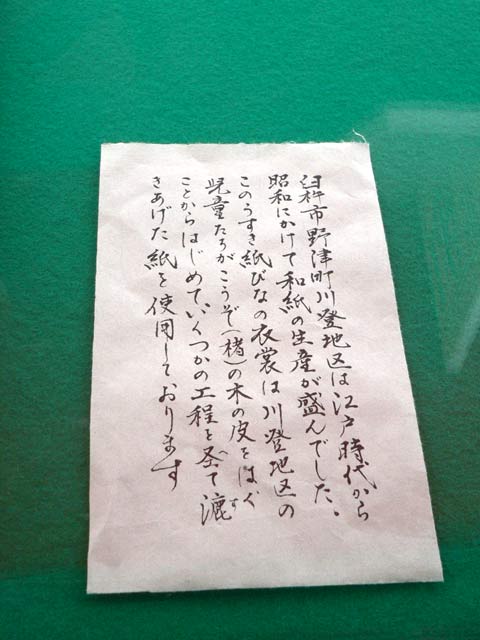 臼杵市野津町川登地区は江戸時代から
昭和にかけて和紙の生産が盛んでした、
このうすき紙びなの衣裳は川登地区の
児童たちがこうぞ(楮)の木の皮をはぐ
ことからはじめていくつかの工程を経て漉す
きあげた紙を使用しております